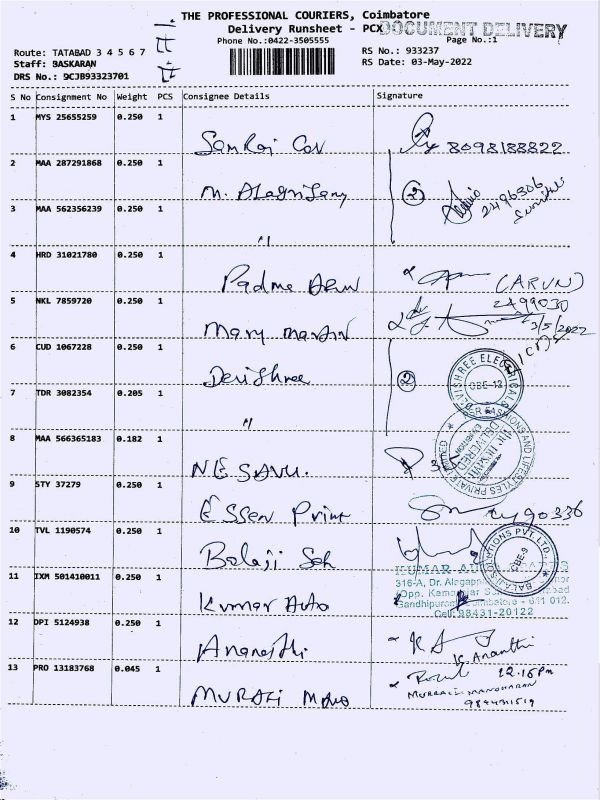 THE PROFESSIONAL COURIERS, Coimbatore
Delivery Runsheet - PCX
DOCUMENT DELIVERY
Phone No.:0422-3505555
Page No.:1
Route: TATABAD 3 4 5 6 7
RS No.: 933237
Staff: BASKARAN
RS Date: 03-May-2022
DRS No.: DCJB93323701
S No Consignment No Weight PCS Consignee Details Signature
1 MYS 25655259 0.250 1
8098188822
2 MAA 287291868 0.250 1
2
2496306
3 MAA 562356239 0.250 1
"
4 HRD 31021780 0.250 1
Padma Arun (ARUN)
5 NKL 7859720 0.250 1
2499030
Mary Martin 3/5/2022
6 CUD 1067228 0.250 1
Devishree 2
CBE-12
7 TDR 3082354 0.205 1
"
8 MAA 566365183 0.182 1
NESAVU.
9 STY 37279 0.250 1
Essen Print 90336
10 TVL 1190574 0.250 1
Balaji Soh
CBE-9
11 IXM 501410011 0.250 1
KUMAR
316-A, Dr.
Opp.
Gandhipuram, Coimbatore - 641 012.
Kumar Auto
Cell: 98431-20122
12 DPI 5124938 0.250 1
Ananthi
K. Ananthi
13 PRO 13183768 0.045 1
12.15pm
MURALI Mano
MURALI MANOHARAN